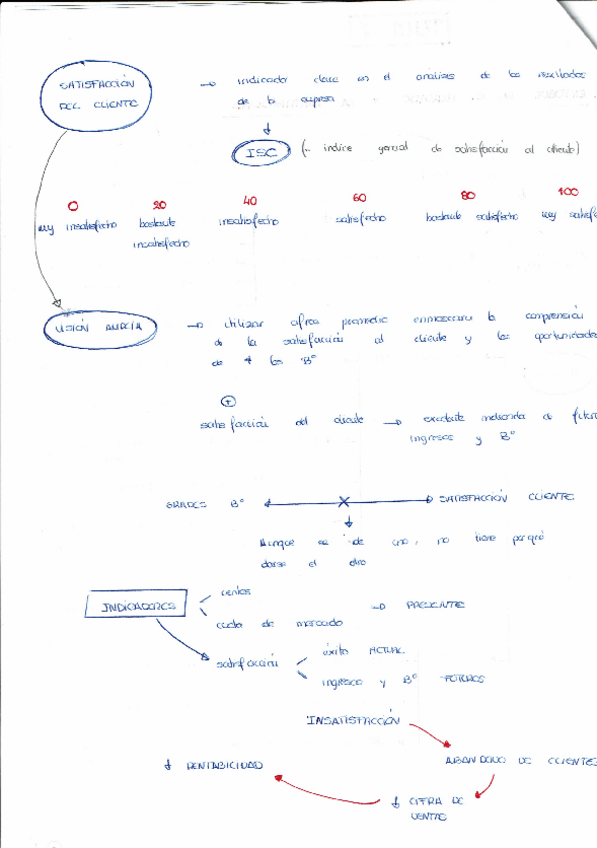 SATISFACCIÓN
DEL CLIENTE
→ indicador clave en el análisis de los resultados
de la empresa
↓
ISC (= índice general de satisfacción al cliente)
0 20 40 60 80 100
muy insatisfecho bastante insatisfecho satisfecho bastante satisfecho muy
insatisfecho
VISIÓN AMPLIA → utilizar cifras promedio enmascara la comprensión
de la satisfacción al cliente y las oportunidades
de ↑ los Bº
+
satisfacción del cliente → excelente medida de
ingresos y Bº
GRADOS Bº ← X → SATISFACCIÓN CLIENTE
↓
Aunque se dé uno, no tiene por qué
darse el otro
INDICADORES
ventas
cuota de mercado → PRESENTE
satisfacción
éxito ACTUAL
ingresos y Bº FUTUROS
INSATISFACCIÓN
ABANDONO DE CLIENTES
↓ RENTABILIDAD
↓ CIFRA DE
VENTAS